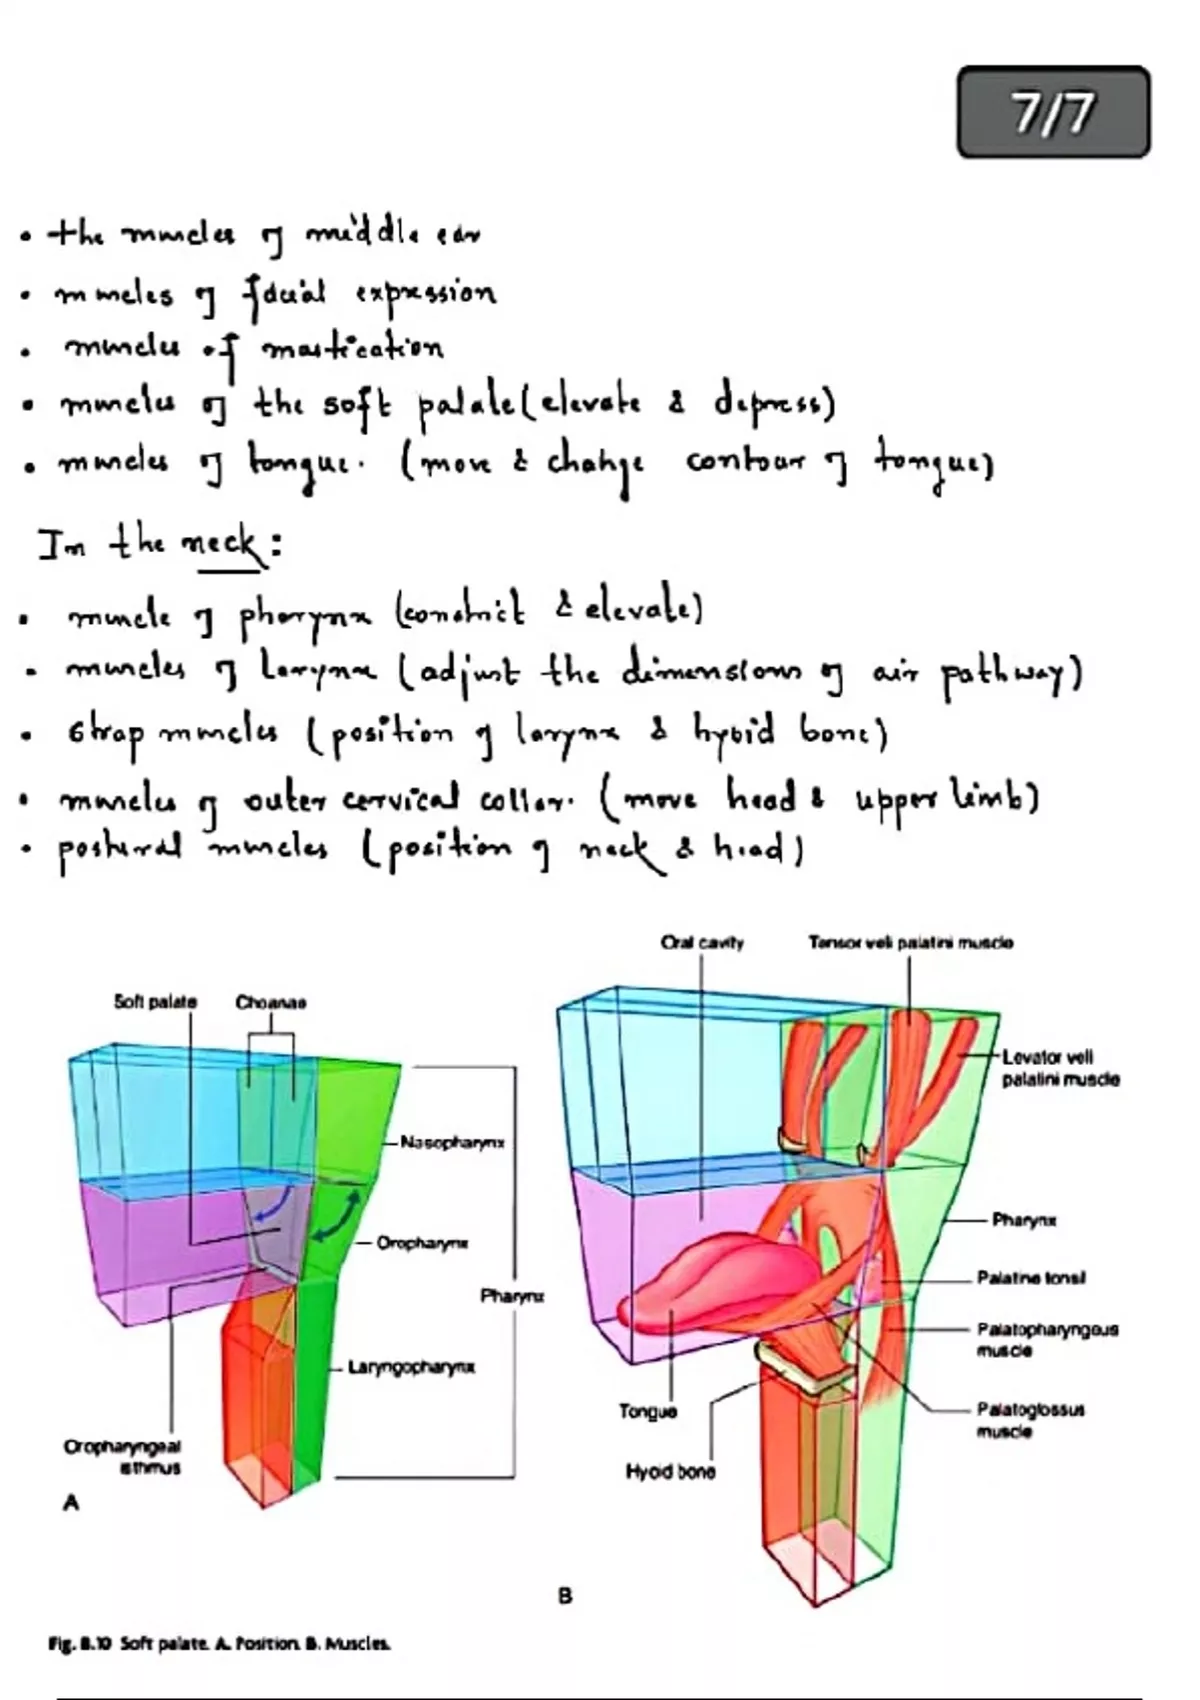 7/7
• the muscles of middle ear
• muscles of facial expression
• muscles of mastication
• muscles of the soft palate (elevate & depress)
• muscles of tongue. (move & change contour of tongue)
In the neck:
• muscle of pharynx (constrict & elevate)
• muscles of larynx (adjust the dimensions of air pathway)
• strap muscles (position of larynx & hyoid bone)
• muscles of outer cervical collar. (move head & upper limb)
• postural muscles (position of neck & head)
Soft palate
Choanae
Nasopharynx
Oropharynx
Pharynx
Laryngopharynx
Oropharyngeal
isthmus
A
Oral cavity
Tensor veli palatini muscle
Levator veli
palatini muscle
Pharynx
Palatine tonsil
Palatopharyngeus
muscle
Palatoglossus
muscle
Tongue
Hyoid bone
B
Fig. 8.10 Soft palate. A. Position. B. Muscles.